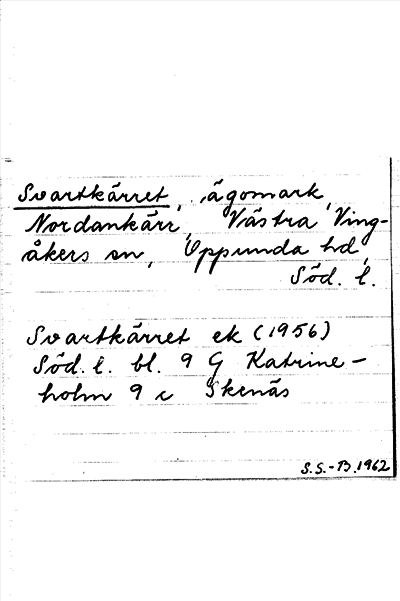 Svartkärret, ägomark,
Nordankärr, Västra Ving-
åkers sn, Oppunda hd,
Söd. l.
Svartkärret ek (1956)
Söd. l. bl. 9 G Katrine-
holm 9 c Skenäs
S.S.-B.1962